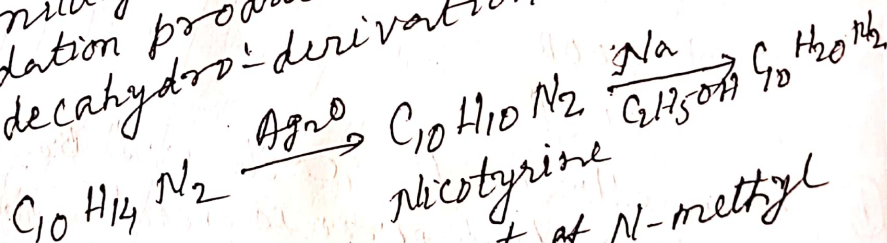 dation
decahydro-derivati
C10 H14 N2 Ag2O → C10 H10 N2 Na C2H5OH → C10 H20 N2
Nicotyrine
of N-methyl